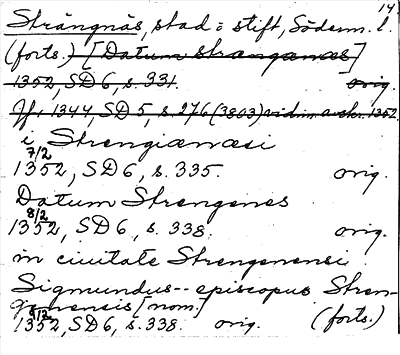 14
Strängnäs, stad o stift, Söderm. l.
(forts.) [Datum strenganæs]
1352, SD 6, s. 331. orig.
Jfr 1344, SD 5, s. 276 (3803) vidim. avskr. 1352
i Strengianæsi
7/2
1352, SD 6, s. 335. orig.
Datum Strengenes
8/2
1352, SD 6, s. 338. orig.
in ciuitate Strengenensi
Sigmundus -- episcopus Stren-
genensis [nom.]
9/2
1352, SD 6, s. 338. orig. (forts.)